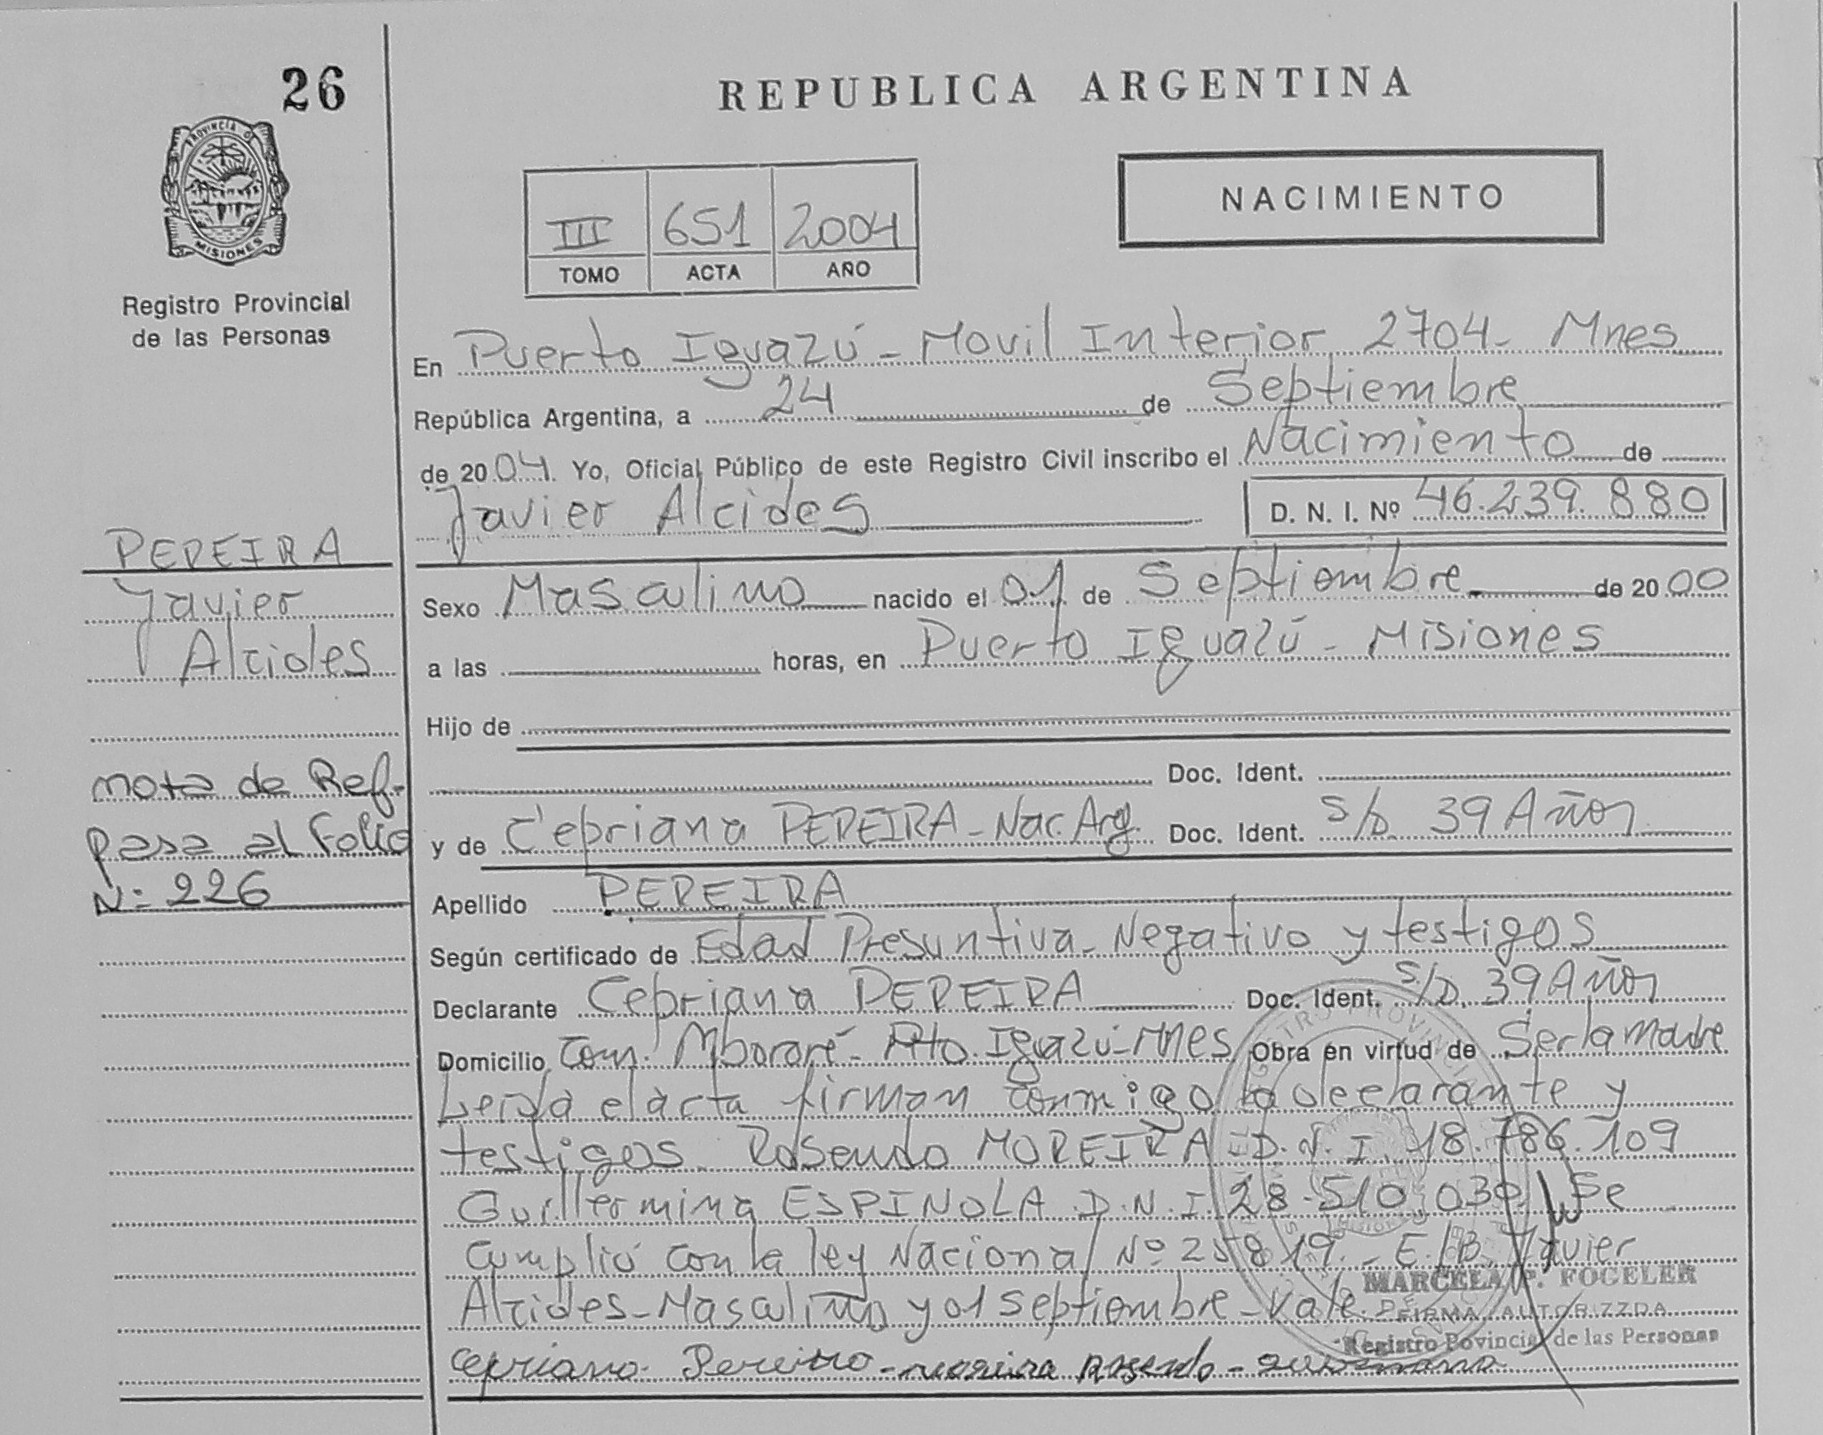 26
REPUBLICA ARGENTINA
PROVINCIA DE
MISIONES
Registro Provincial
de las Personas
III 651 2004
TOMO ACTA AÑO
NACIMIENTO
En Puerto Iguazú - Movil Interior 2704 - Mnes
República Argentina, a 24 de Septiembre
de 2004. Yo, Oficial Público de este Registro Civil inscribo el Nacimiento de
Javier Alcides D. N. I. Nº 46.239.880
PEREIRA
Javier
Alcides
Sexo Masculino nacido el 01 de Septiembre de 2000
a las horas, en Puerto Iguazú - Misiones
Hijo de
Doc. Ident.
nota de Ref.
pasa al Folio
N: 226
y de Cepriana PEREIRA - Nac. Arg. Doc. Ident. S/D 39 Años
Apellido PEREIRA
Según certificado de Edad Presuntiva - Negativo y testigos
Declarante Cepriana PEREIRA Doc. Ident. S/D 39 Años
Domicilio Com. Mbororé - Pto. Iguazú - Mnes Obra en virtud de Ser la Madre
Leida el acta firman conmigo la declarante y
testigos Rosendo MOREIRA D.N.I 18.786.109
Guillermina ESPINOLA D.N.I 28.510.030 Se
cumplió con la ley Nacional Nº 25819 - E/B Javier
Alcides - Masculino y 01 Septiembre - Vale
MARCELA P. FOGELER
FIRMA AUTORIZZDA
Registro Povincial de las Personas
Cepriano Pereira - moreira Rosendo -